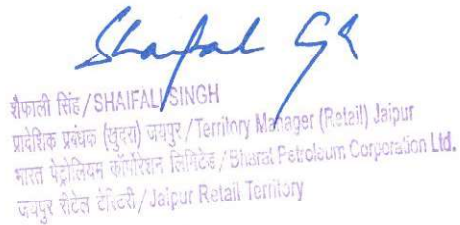 शैफाली सिंह/SHAIFALI SINGH
प्रादेशिक प्रबंधक (खुदरा) जयपुर/Territory Manager (Retail) Jaipur
भारत पेट्रोलियम कॉर्पोरेशन लिमिटेड/Bharat Petroleum Corporation Ltd.
जयपुर रीटेल टेरिटरी/Jaipur Retail Territory